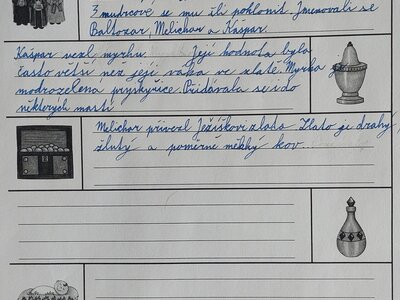 3 mudrcové se mu šli poklonit. Jmenovali se
Baltazar, Melichar a Kašpar.
Kašpar vezl myrhu. Její hodnota byla
často větší než její váha ve zlatě. Myrha je
modrozelená pryskyřice. Přidávala se i do
některých mastí.
Melichar přivezl Ježíškovi zlato. Zlato je drahý,
žlutý a poměrně měkký kov...